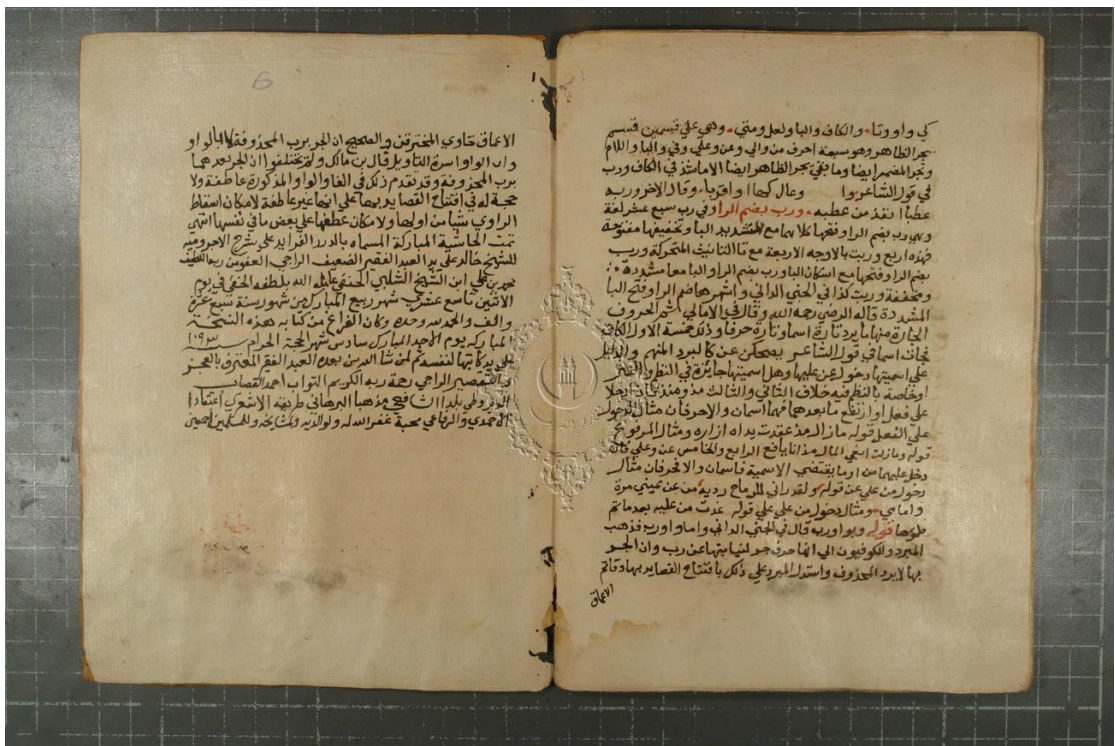 كي واو وتا والكاف والبا ولعل ومتي وهي علي قسمين قسم
يجر الظاهر وهو سبعة احرف من والي وعن وعلي وفي والبا واللام
وتجر المضمر ايضا وما بقي يجر الظاهر ايضا الا ما شذ في الكاف ورب
في قول الشاعر وام اوعال كها او اقربا وقال الاخر وربه
عطبا انقذ من عطبه ورب بضم الرا وفي رب سبع عشر لغة
وهي رب بضم الرا وفتحها كلاهما مع تشديد البا وتخفيفها مفتوحة
فهذه اربع وربت بالاوجه الاربعة مع تا التانيث المتحركة ورب
بضم الرا وفتحها مع اسكان البا ورب بضم الرا والبا معا مشددة
ومخففة وربت كذا في الجني الداني واشهرها ضم الرا وفتح البا
المشددة قاله الرضي رحمه الله وقال في الامالي اسم الحروف
الجارة منها ما يرد تارة اسما وتارة حرفا وذلك خمسة الاول الكاف
فجات اسما في قول الشاعر يضحكن عن كالبرد المنهم والدليل
علي اسميتها دخول عن عليها وهل اسميتها جايزة في النظم والنثر
او خاصة بالنظم فيه خلاف الثاني والثالث مذ ومنذ فان دخلا
علي فعل او ارتفع ما بعدهما فهما اسمان والا حرفان مثال الدخول
علي الفعل قوله ما زال مذ عقدت يداه ازاره ومثال المرفوع
قوله وما زلت ابغي المال مذ انا يافع الرابع والخامس عن وعلي فان
دخل عليهما من او ما يقتضي الاسمية فاسمان والا حرفان مثال
دخول من علي عن قوله ولقد اراني للرماح ردية من عن يميني مرة
وامامي ومثال دخول من علي علي قوله غدت من عليه بعد ما تم
ظموها قوله وبواو رب قال في الجني الداني واما واو رب فذهب
المبرد والكوفيون الي انها حرف جر لنيابتها عن رب وان الجر
بها لا برب المحذوف واستدل المبرد علي ذلك بافتتاح القصايد بها وقاتم
الاعماق
6
الاعماق خاوي المخترقن والصحيح ان الجر برب المحذوفة لا بالواو
وان الواو اسرة التاويل قال بن مالك ولم يختلفوا ان الجر بعدهما
برب المحذوفة وقد تقدم ذلك في الفا والواو المذكورة عاطفة ولا
حجة له في افتتاح القصايد بها علي انها غير عاطفة لامكان اسقاط
الراوي شيا من اولها ولامكان عطفها علي بعض ما في نفسها انتهي
تمت الحاشية المباركة المسماه بالدرر الفرايد علي شرح الاجروميه
للشيخ خالد علي يد العبد الفقير الضعيف الراجي العفو من ربه اللطيف
علي ابن الشيخ الشلبي الحنفي عامله الله بلطفه الخفي في يوم
الاثنين تاسع عشري شهر ربيع المبارك من شهور سنة تسع عشرة
والف والحمد لله وحده وكان الفراغ من كتابه هذه النسخة
المباركه يوم الاحد المبارك سادس شهر الحجة الحرام ١٠٩٣
علي يد كاتبها لنفسه ثم لمن شا الله من بعده العبد الفقير المعترف بالعجز
والتقصير الراجي رحمة ربه الكريم التواب احمد القصاب
بلدا الشافعي مذهبا البرهاني طريقه الاشعري اعتقادا
الاحمدي والرفاعي محبة غفر الله له ولوالديه ولمشايخه وللمسلمين اجمعين